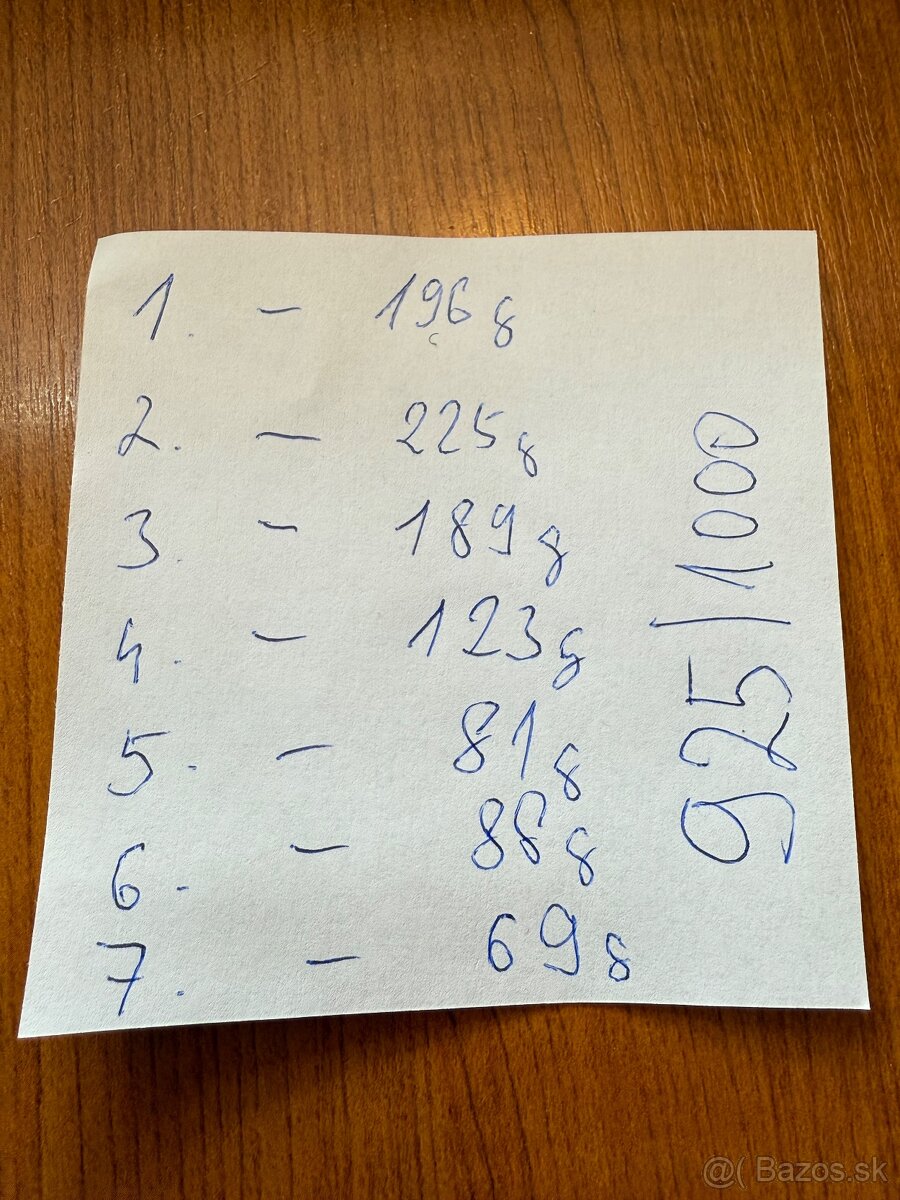 1. - 196g
2. - 225g
3. - 189g
4. - 123g
5. - 81g
6. - 88g
7. - 69g
925/1000
@( Bazos.sk